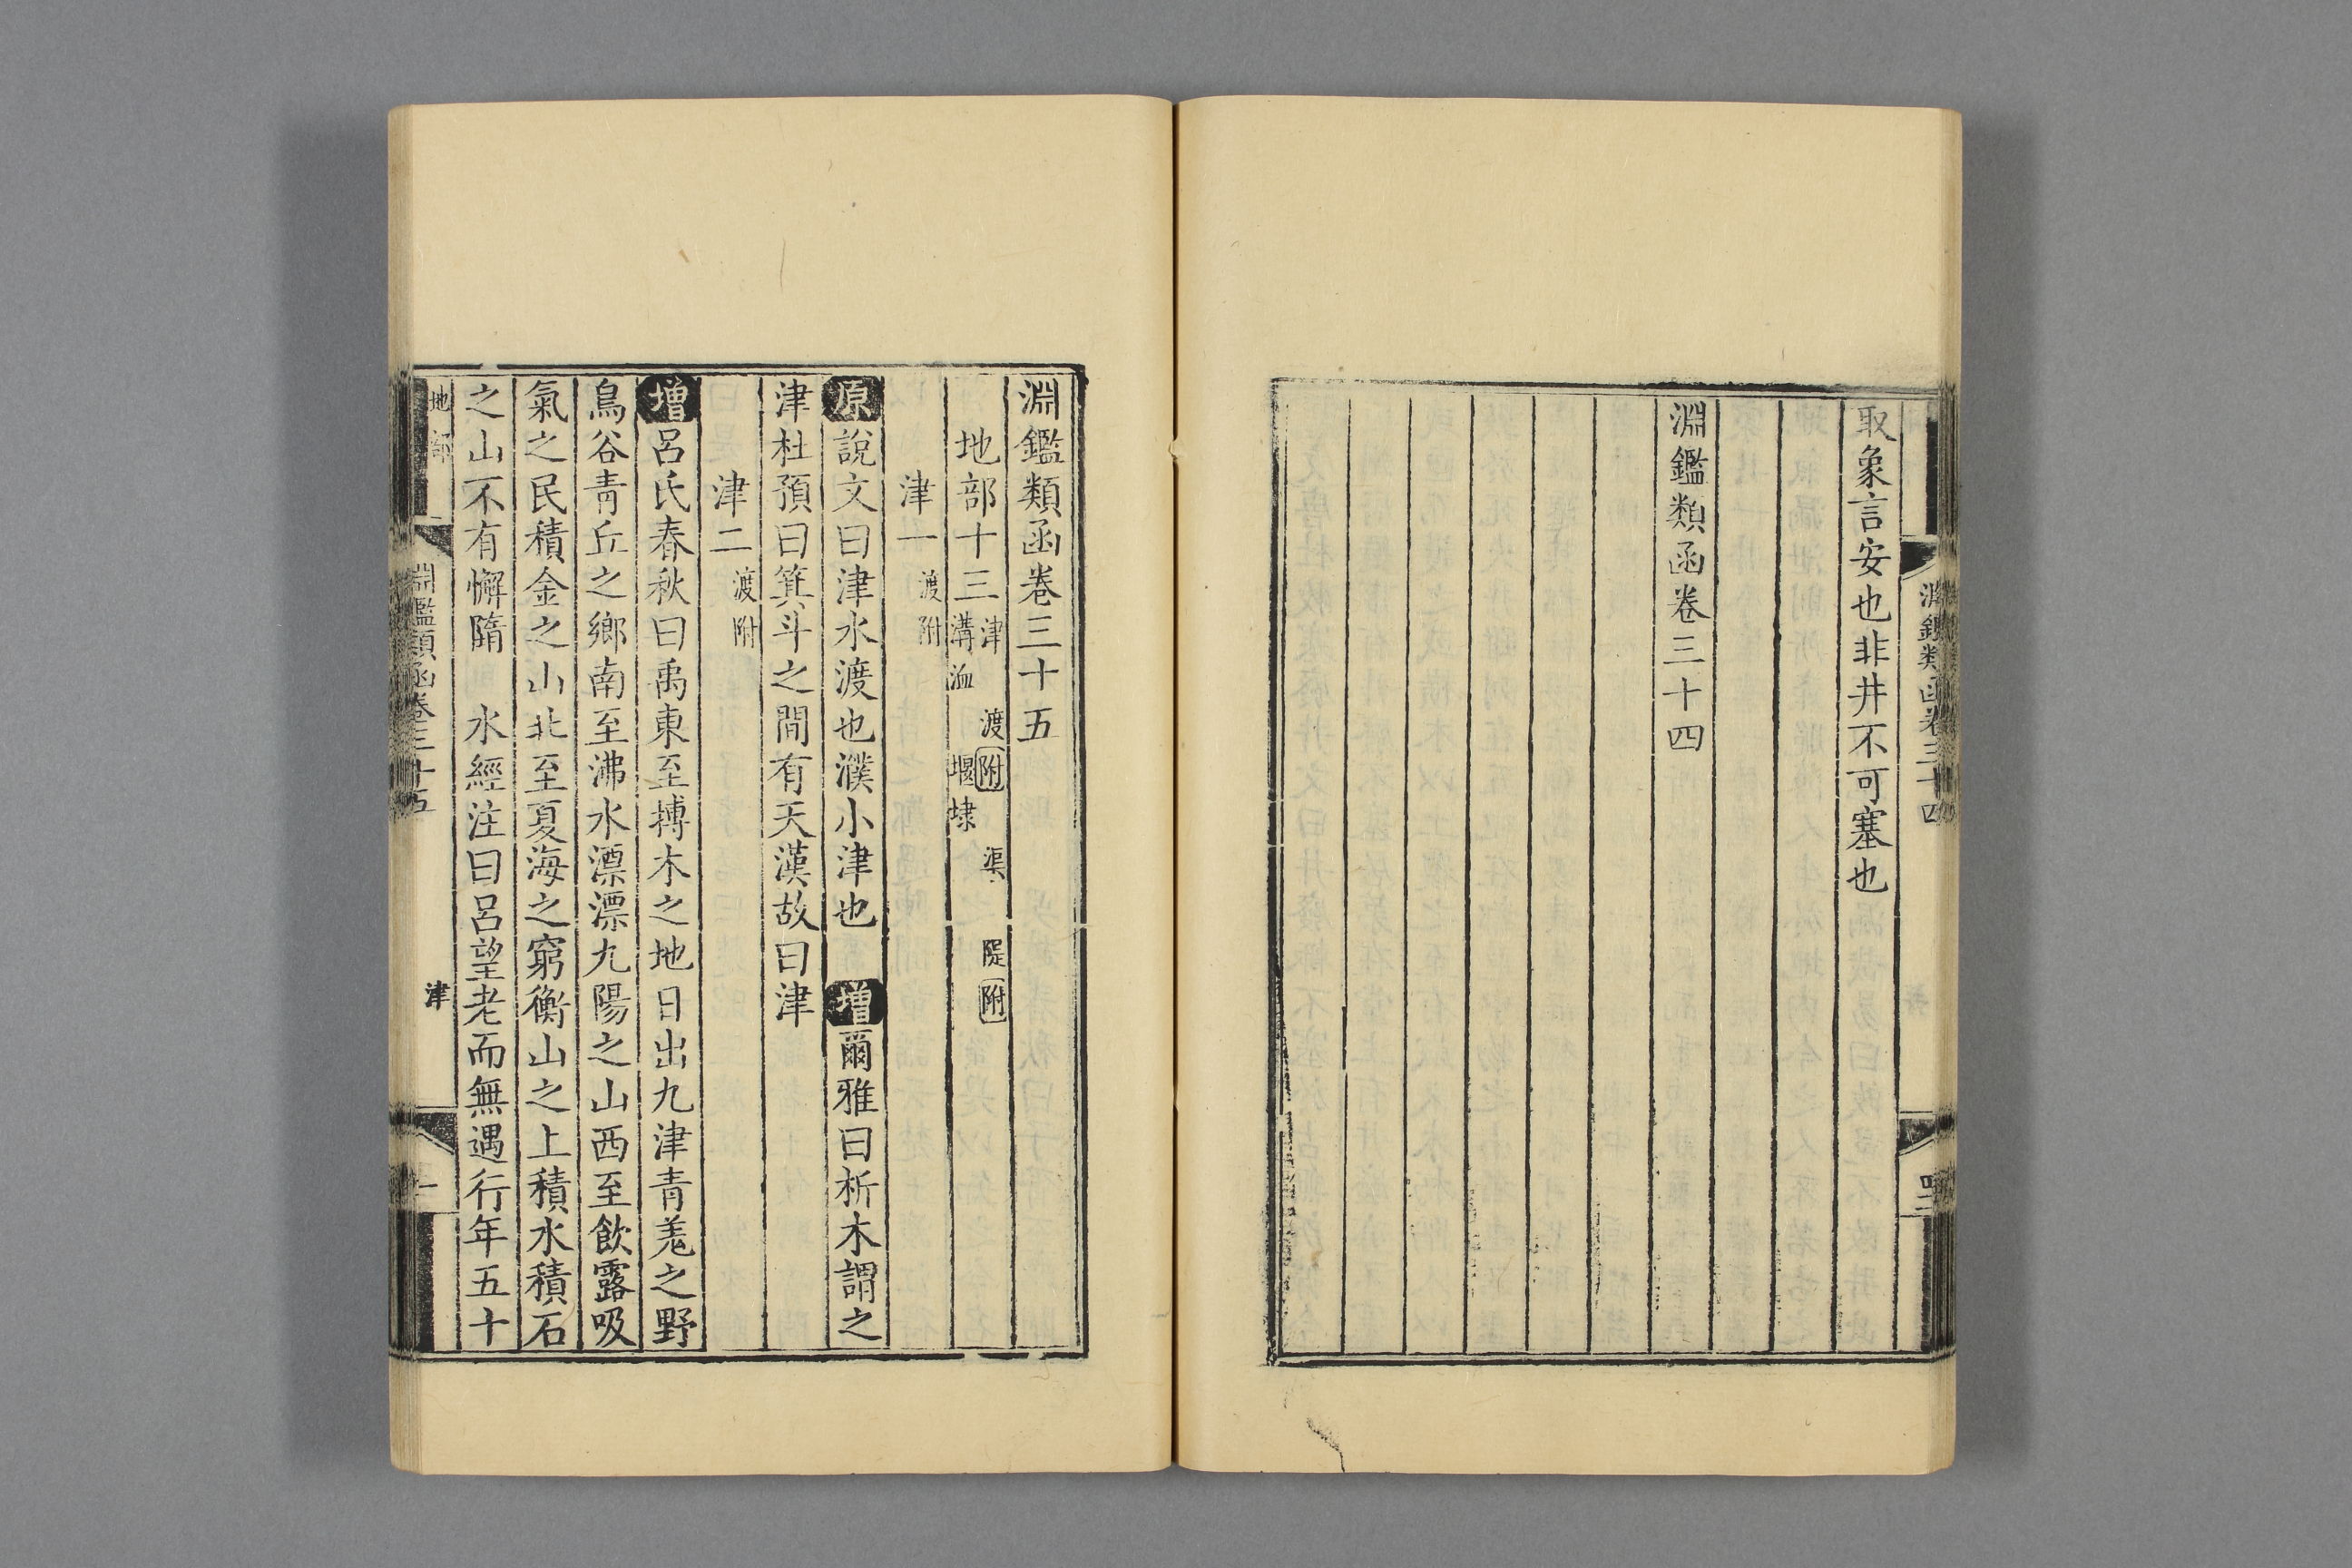 取象言安也非井不可塞也
淵鑑類函卷三十四
淵鑑類函卷三十四
淵鑑類函卷三十五
地部十三 津 渡附 渠 隄附
溝洫 堰埭
津一 渡附
原說文曰津水渡也濮小津也 增爾雅曰析木謂之
津杜預曰箕斗之間有天漢故曰津
津二 渡附
增呂氏春秋曰禹東至搏木之地日出九津青羌之野
鳥谷青丘之鄉南至沸水漂漂九陽之山西至飲露吸
氣之民積金之山北至夏海之窮衡山之上積水積石
之山不有懈隋 水經注曰呂望老而無遇行年五十
地部 淵鑑類函卷三十五 津 一